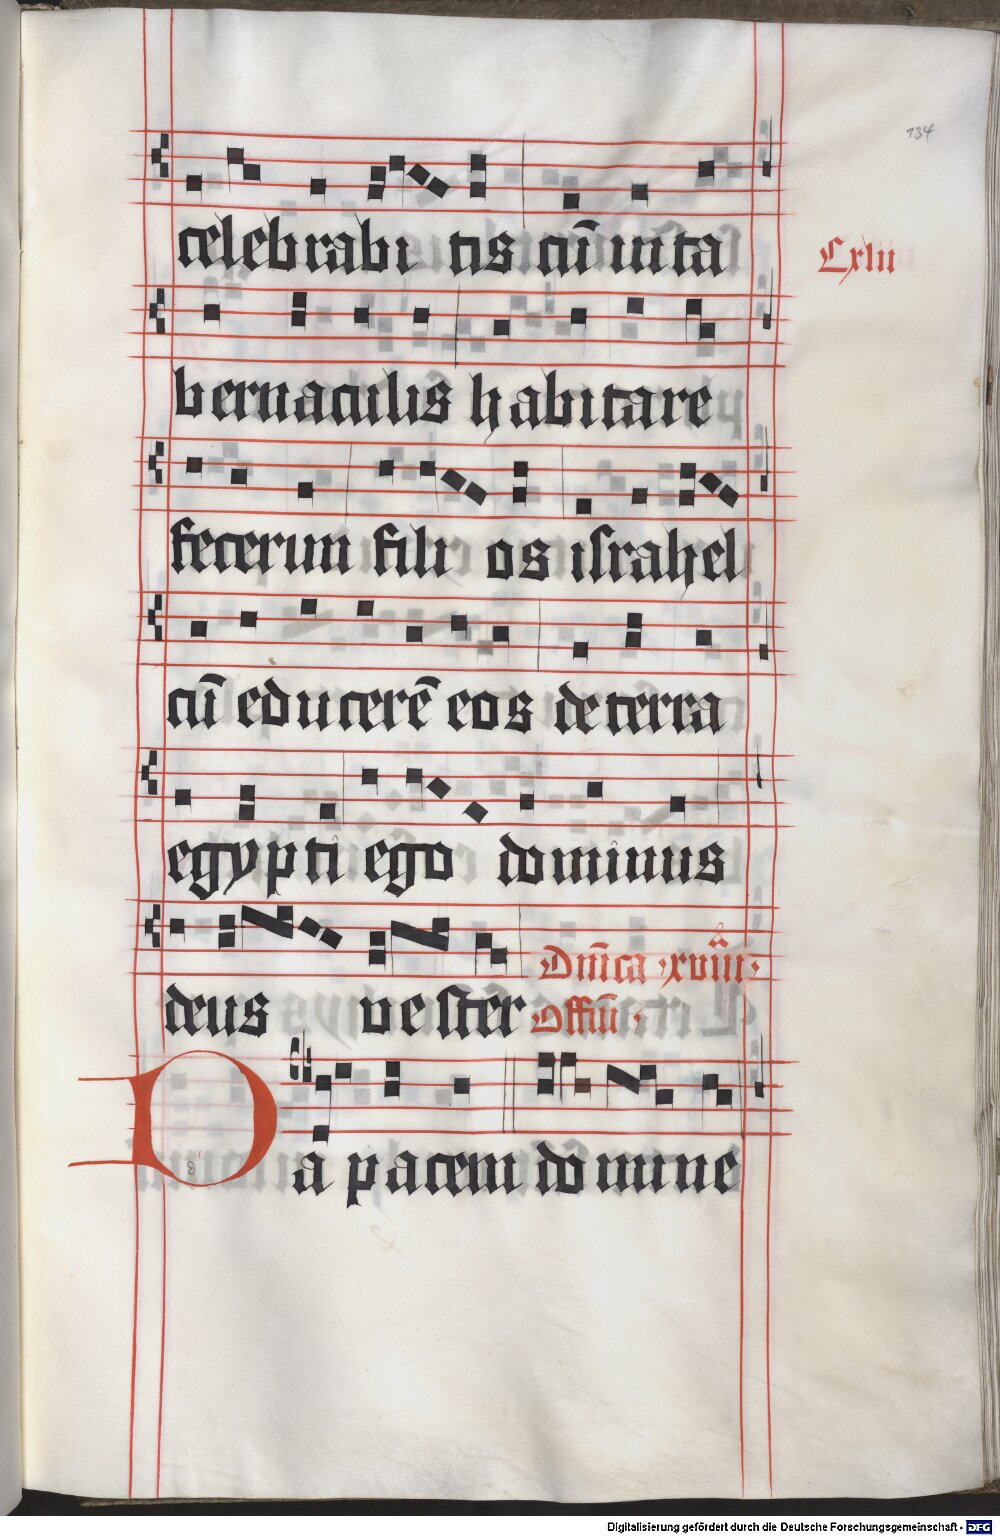 134
celebrabi tis cū in ta
Cxlii
bernaculis habitare
fecerim fili os israhel
cū educerē eos de terra
egypti ego dominus
Dnica xviii
deus vester
Offm
Da pacem domine
Digitalisierung gefördert durch die Deutsche Forschungsgemeinschaft - DFG